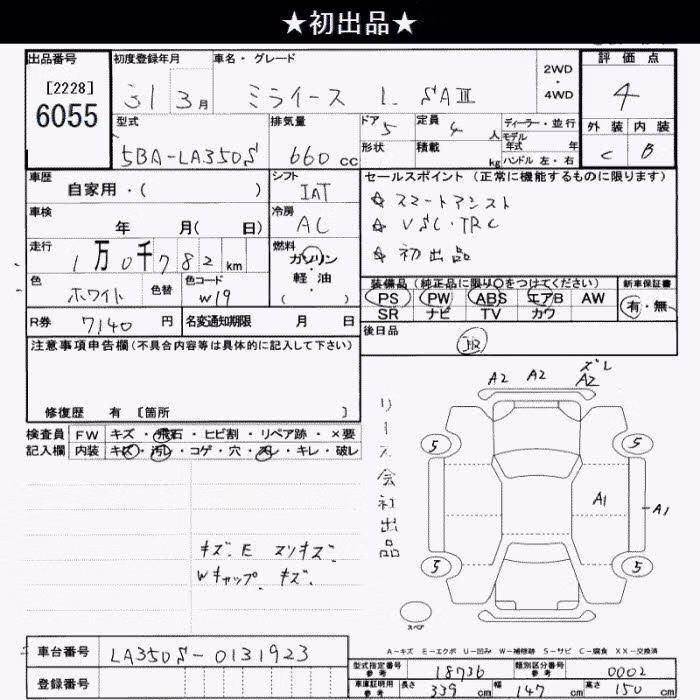 ★初出品★
出品番号
[2228]
6055
初度登録年月
31 3月
車名・グレード
ミライース L SAⅢ
2WD
・
4WD
評価点
4
外装 内装
C B
型式
5BA-LA350S
排気量
660 cc
ドア
5
定員
4 人
ディーラー・並行
モデル
年式 年
ハンドル 左・右
形状
積載
kg
車歴
自家用・( )
シフト
IAT
車検
年 月( 日)
冷房
AC
走行
1万0千782km
燃料
ガソリン
・
軽油
( )
色
ホワイト
色替
色コード
W19
R券
7140 円
名変通知期限 月 日
セールスポイント(正常に機能するものに限ります)
☆ スマートアシスト
☆ VSC・TRC
☆ 初出品
装備品(純正品に限り〇をつけてください)
PS PW ABS エアB AW
SR ナビ TV カワ
新車保証書
有・無
後日品
注意事項申告欄(不具合内容等は具体的に記入して下さい)
修復歴 有 [箇所 ]
検査員
記入欄
FW キズ・飛石・ヒビ割・リペア跡・×要
内装 キズ・汚レ・コゲ・穴・スレ・キレ・破レ
キズ、E スリキズ
Wキャップ キズ、
リース会社出品
A2 A2 ズレ
A2
5 5
A1 A1
5 5
スペア
A-キズ E-エクボ U-凹み W-補修跡 S-サビ C-腐食 XX-交換済
車台番号
LA350S-0131923
登録番号
型式指定番号
参考
18736
類別区分番号
参考
0002
車庫証明用
参考
長さ 339 cm 幅 147 cm 高さ 150 cm